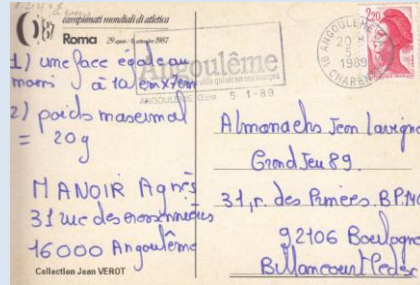 campionati mondiali di atletica
Roma 29 agosto - 6 settembre 1987
1) une face egale au
moins à 10 cm x 7 cm
2) poids maximal
= 20g
MANOIR Agnès
31 rue des
16000 Angoulême
Collection Jean VEROT
Angoulême
ville qui vit en ses images
ANGOULEME Gare 5-1-89
2,20
16 ANGOULEME
20 H
5
1989
CHARENTE
Almanachs Jean Lavigne
Grand Jeu 89
31, r. des Pr BP
92106 Boulogne
Billancourt Cedex